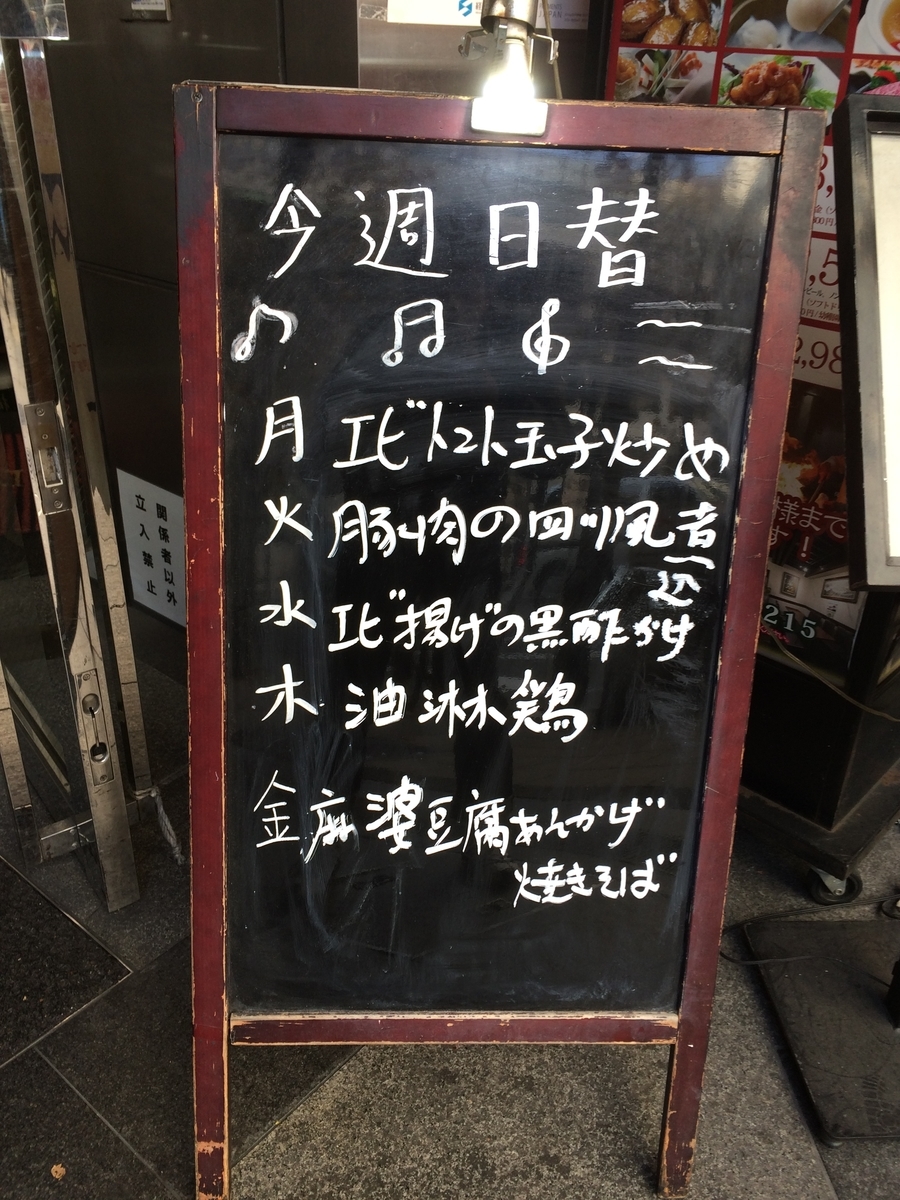 今週日替
月 エビトマト玉子炒め
火 豚肉の四川風煮
込
水 エビ揚げの黒酢がけ
木 油淋鶏
金 麻婆豆腐あんかけ
焼きそば
関係者以外
立入禁止
様まで
す!
215
2,98